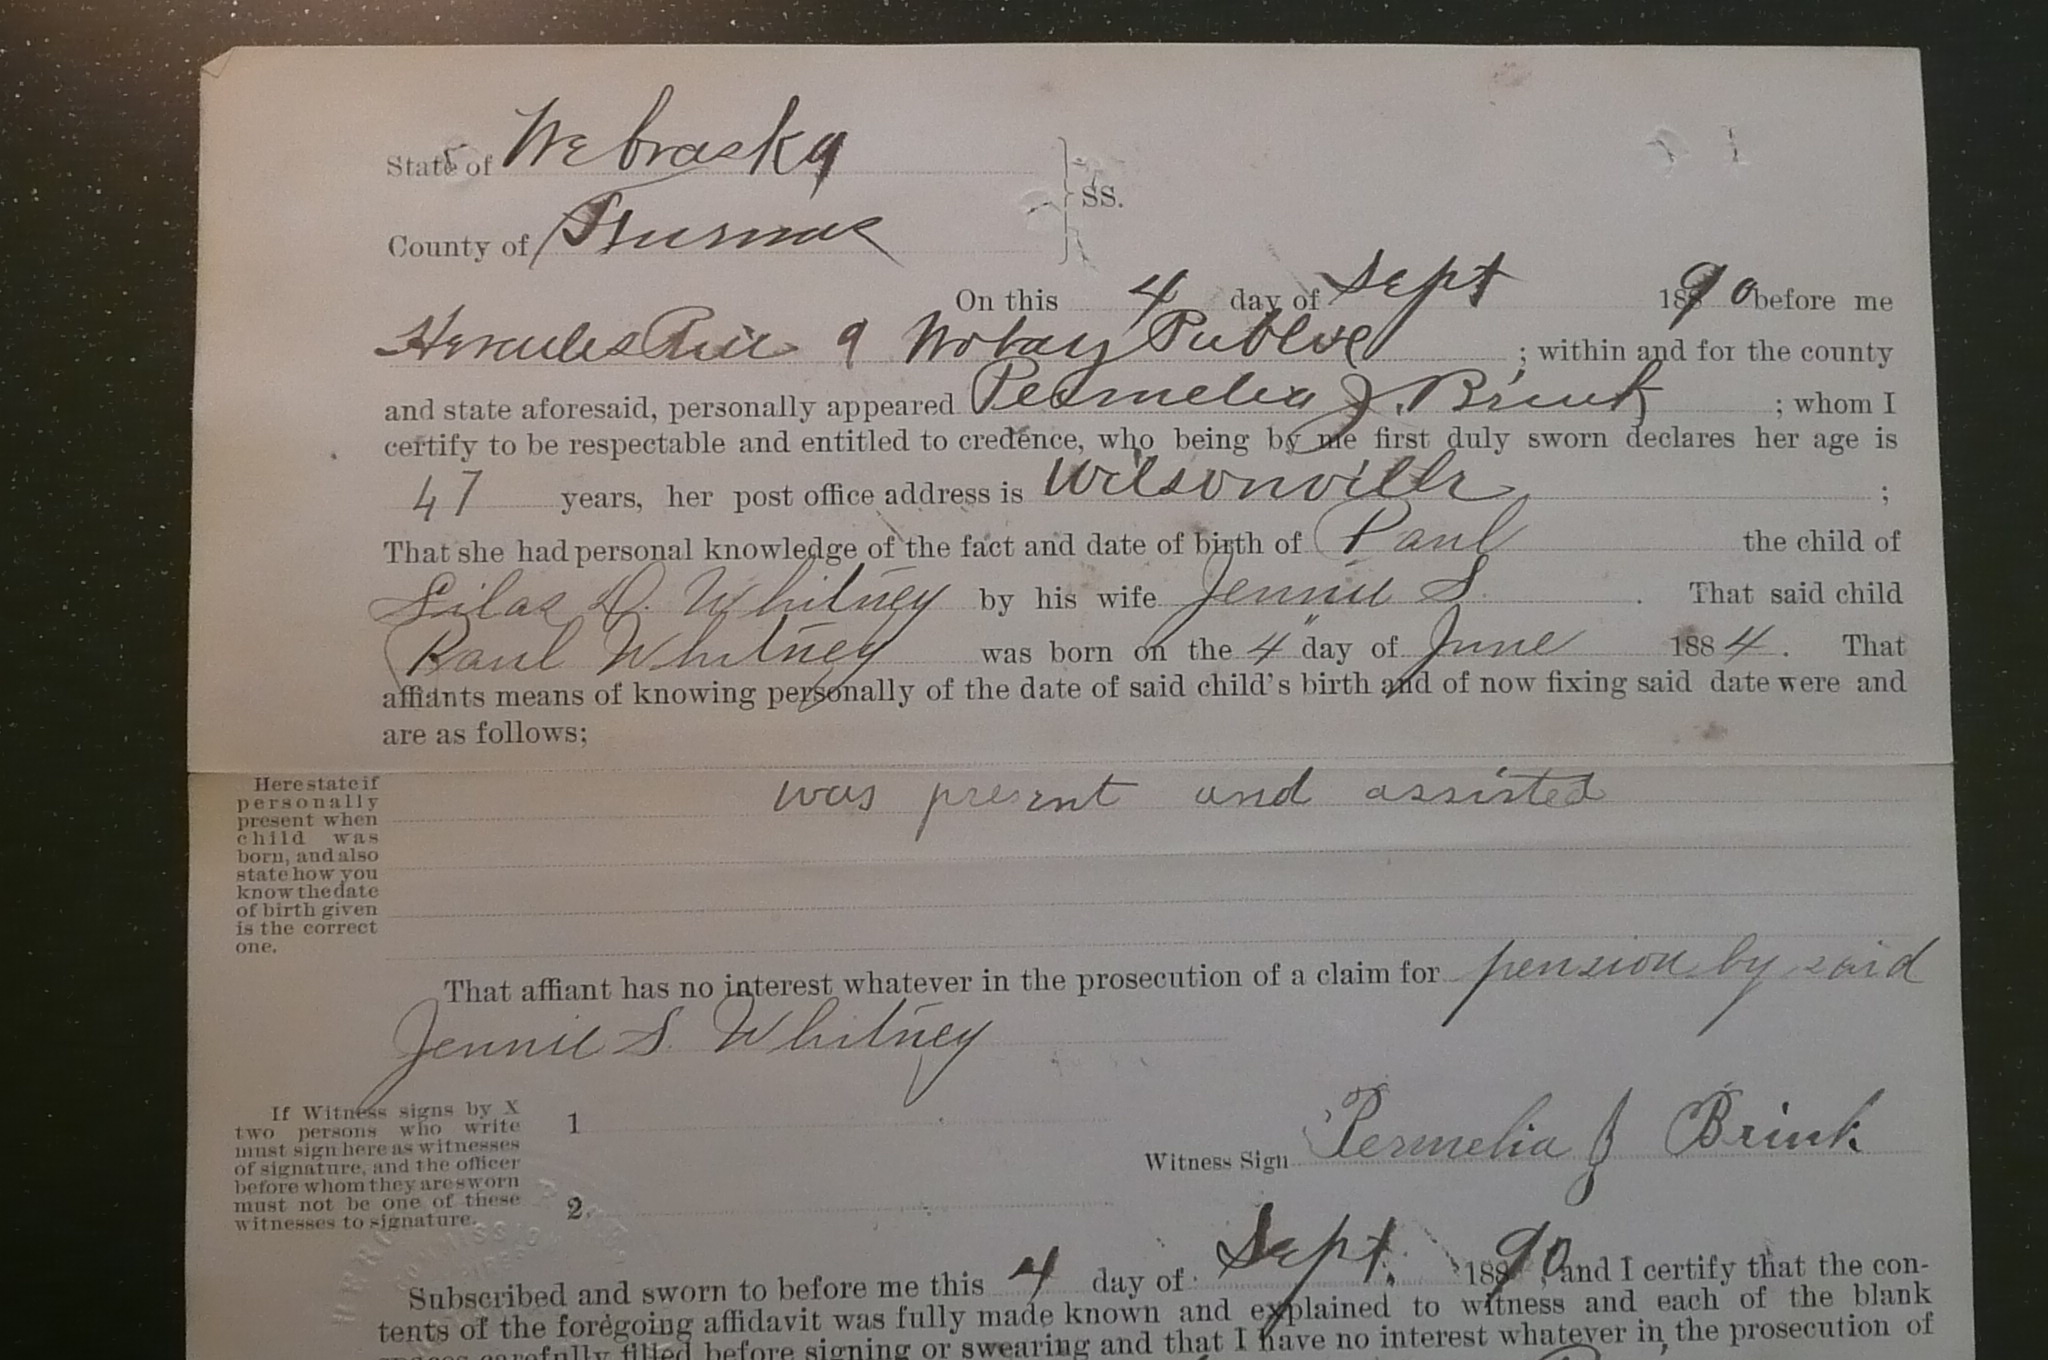 State of Nebraska
SS.
County of Furnas
On this 4 day of Sept 1890 before me
Hercules Rice a Notary Public ; within and for the county
and state aforesaid, personally appeared Permelia J. Brink ; whom I
certify to be respectable and entitled to credence, who being by me first duly sworn declares her age is
47 years, her post office address is Wilsonville ;
That she had personal knowledge of the fact and date of birth of Paul the child of
Silas D. Whitney by his wife Jennie S. That said child
Paul Whitney was born on the 4" day of June 1884. That
affiants means of knowing personally of the date of said child's birth and of now fixing said date were and
are as follows;
Here state if
personally
present when
child was
born, and also
state how you
know the date
of birth given
is the correct
one.
was present and assisted
That affiant has no interest whatever in the prosecution of a claim for pension by said
Jennie S. Whitney
If Witness signs by X
two persons who write
must sign here as witnesses
of signature, and the officer
before whom they are sworn
must not be one of these
witnesses to signature.
1
2
Witness Sign Permelia J Brink
Subscribed and sworn to before me this 4 day of Sept. 1890, and I certify that the con-
tents of the foregoing affidavit was fully made known and explained to witness and each of the blank
spaces carefully filled before signing or swearing and that I have no interest whatever in the prosecution of